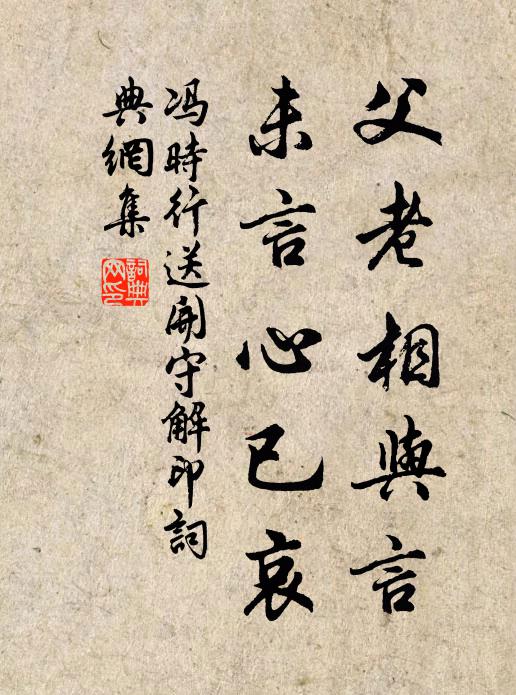 父老相與言
未言心已哀
冯時行送開守解印詞
典網集
詞典
网印